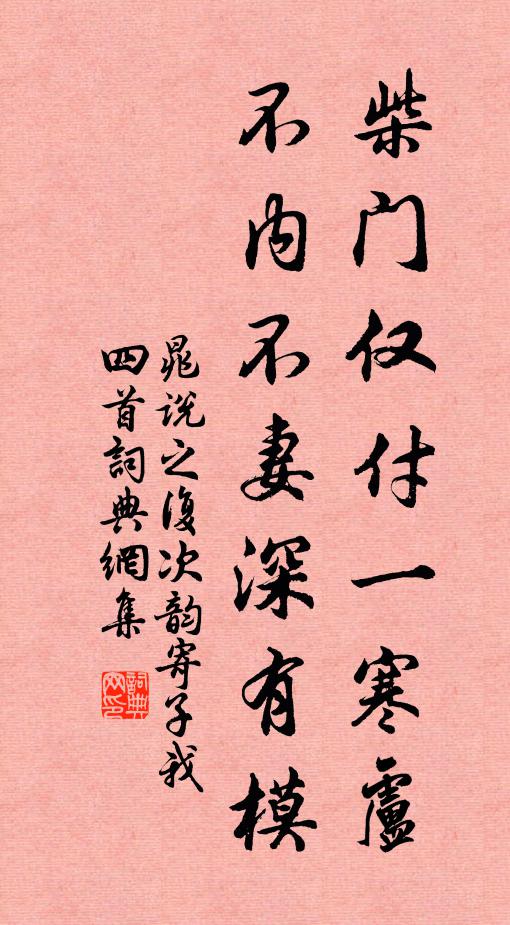 柴门仅付一寒廬
不内不妻深有模
晁说之復次韵寄子我
四首詞典網集
詞典
网印